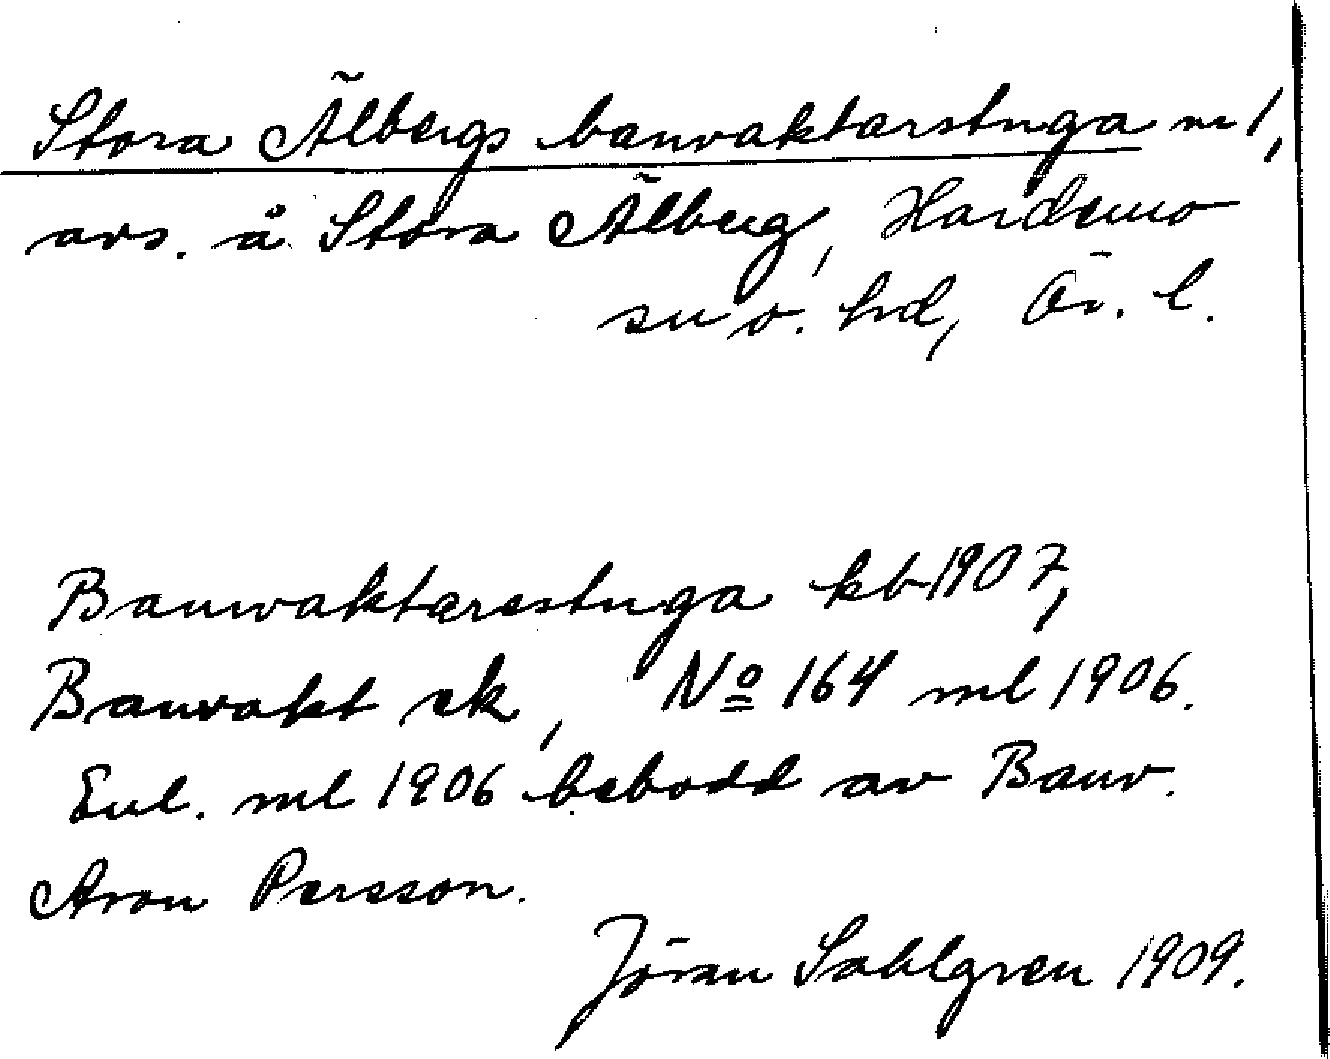 Stora Älbergs banvaktarstuga n 1,
avs. å Stora Älberg, Hardemo
sn o. hd, Ör. l.
Banvaktarestuga kb 1907,
Banvakt ek, No 164 ml 1906.
Enl. ml 1906 bebodd av Banv.
Aron Persson.
Jöran Sahlgren 1909.